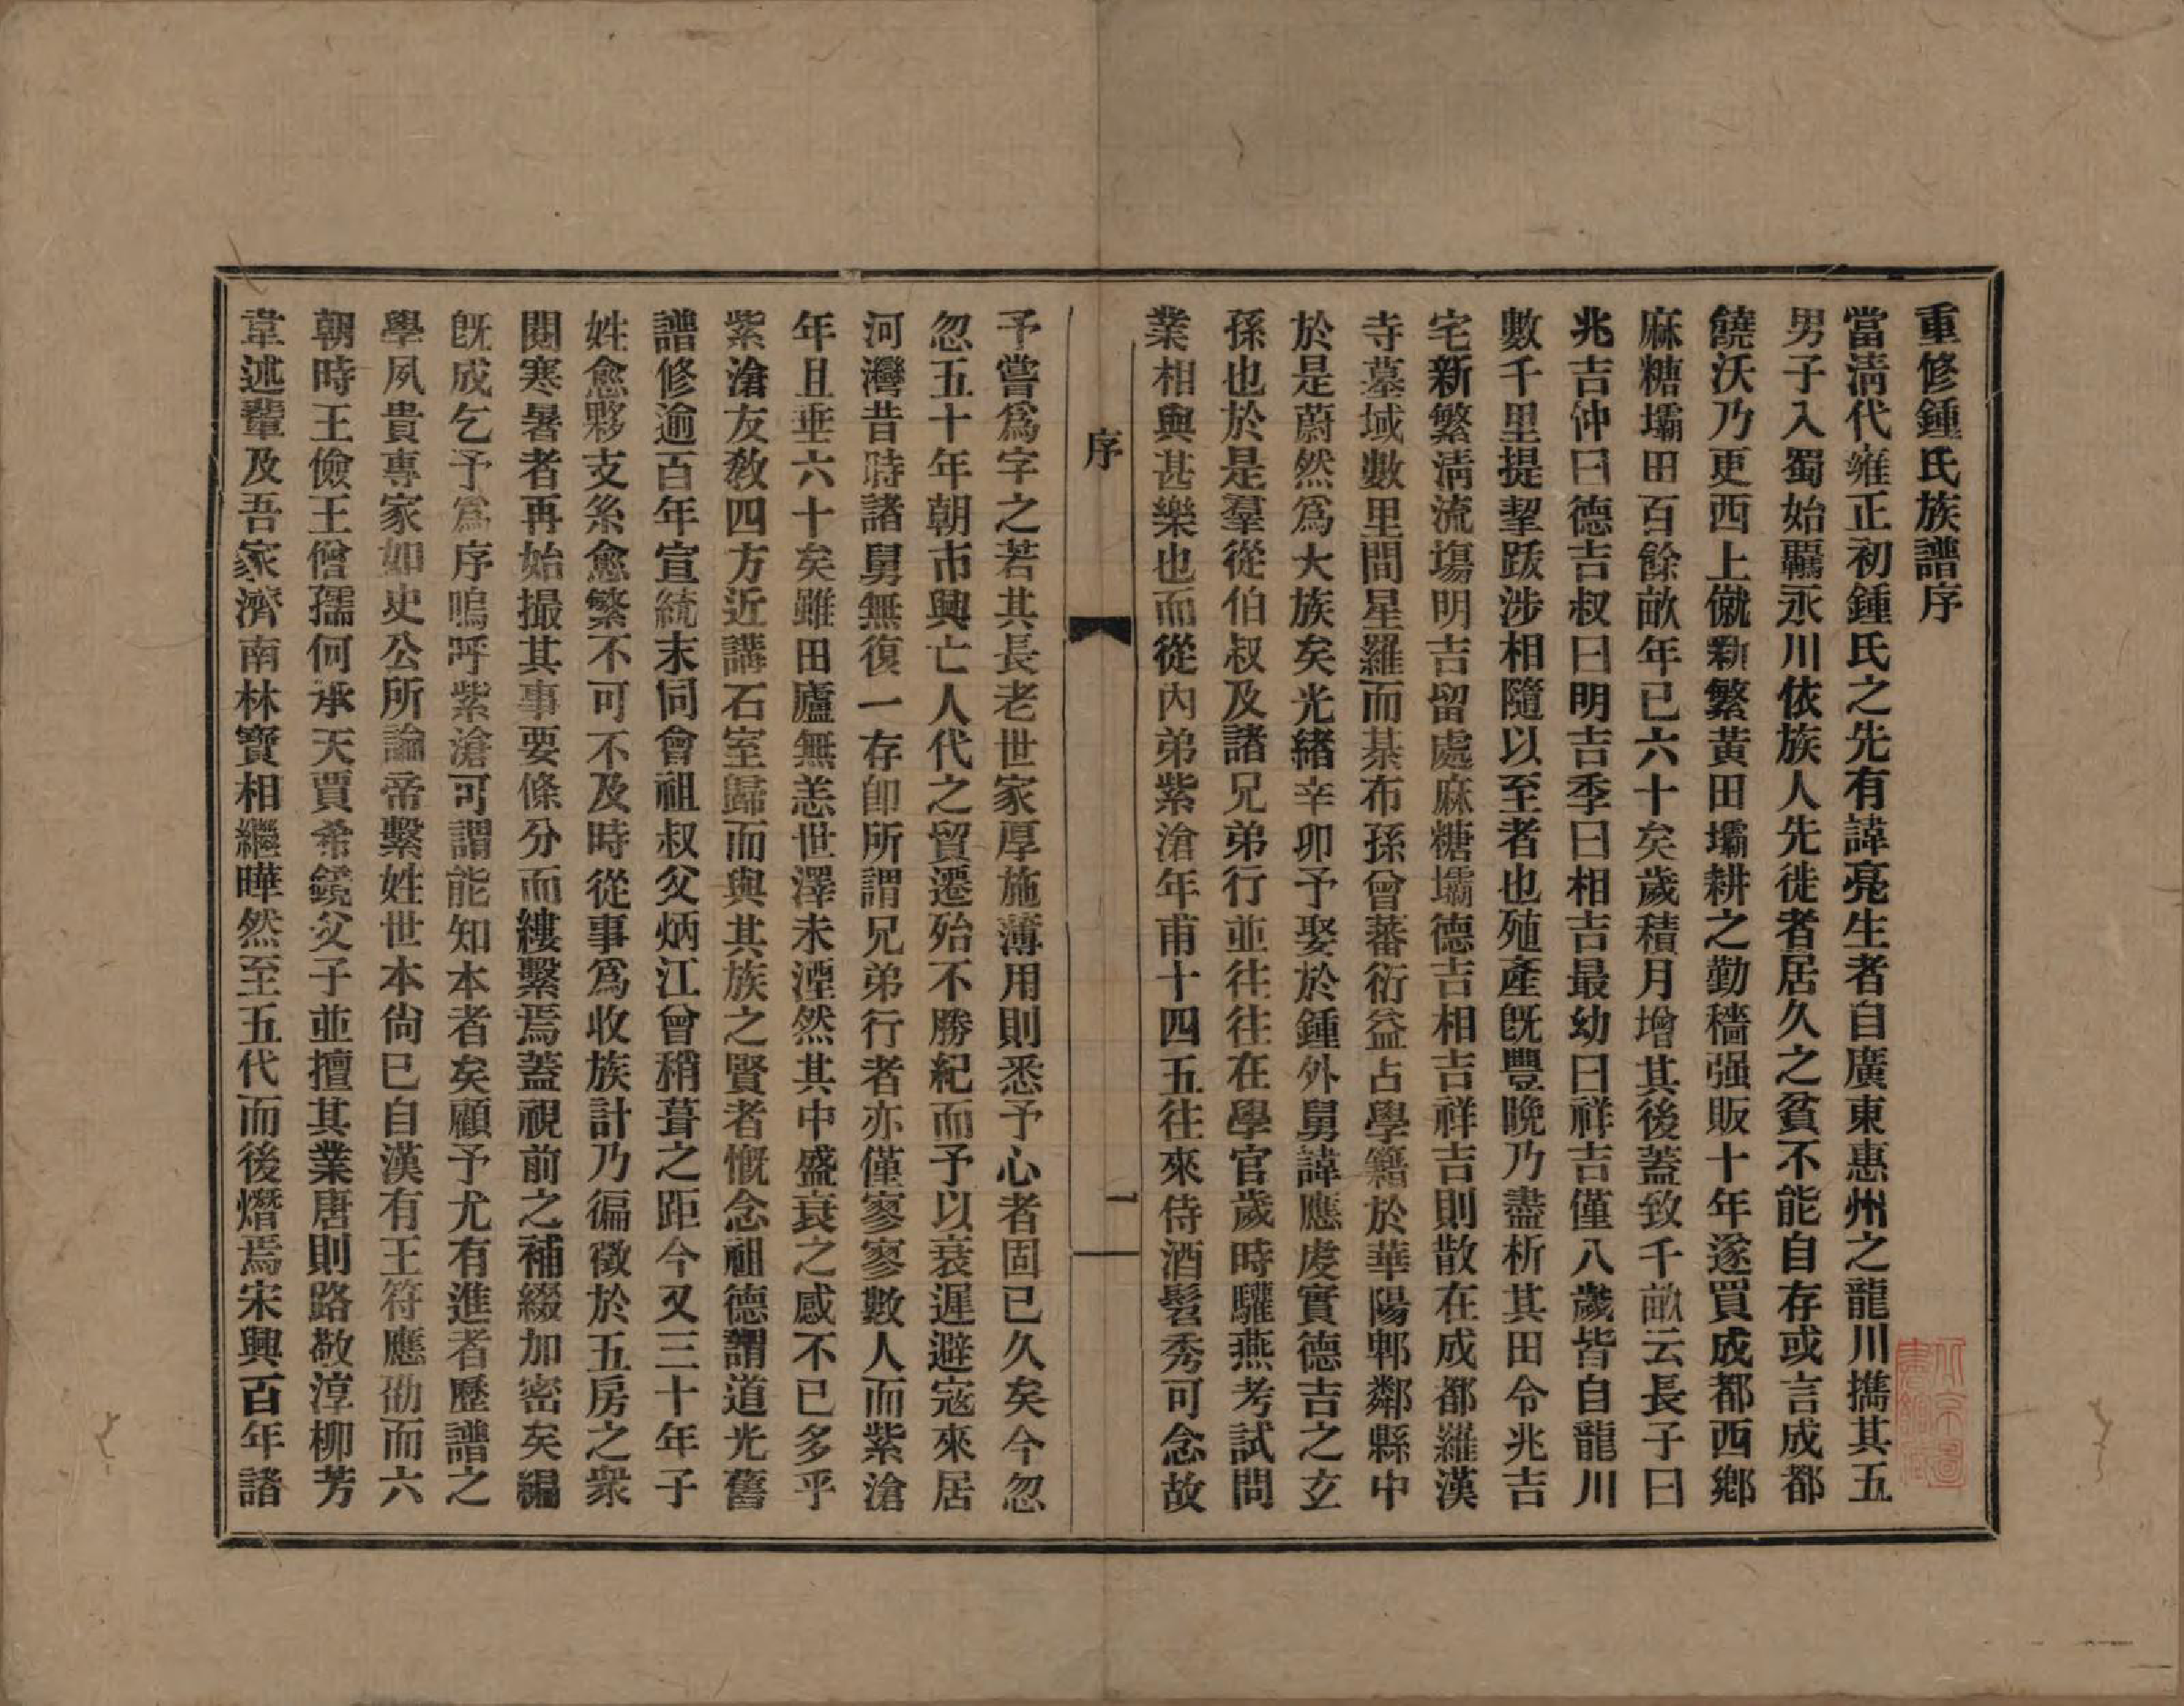 重修鍾氏族譜序
當淸代雍正初鍾氏之先有諱亮生者自廣東惠州之龍川攜其五
男子入蜀始羈永川依族人先徙者居久之貧不能自存或言成都
饒沃乃更西上僦新繁黃田壩耕之勤穡强販十年遂買成都西鄉
麻糖壩田百餘畝年已六十矣歲積月增其後蓋致千畝云長子曰
兆吉仲曰德吉叔曰明吉季曰相吉最幼曰祥吉僅八歲皆自龍川
數千里提挈跋涉相隨以至者也殖產旣豐晚乃盡析其田令兆吉
宅新繁淸流塲明吉留處麻糖壩德吉相吉祥吉則散在成都羅漢
寺墓域數里間星羅而棊布孫曾蕃衍益占學籍於華陽郫鄰縣中
於是蔚然爲大族矣光緒辛卯予娶於鍾外舅諱應虔實德吉之玄
孫也於是羣從伯叔及諸兄弟行並往往在學官歲時驩燕考試問
業相與甚樂也而從內弟紫滄年甫十四五往來侍酒髫秀可念故
序
一
予嘗爲字之若其長老世家厚施薄用則悉予心者固已久矣今忽
忽五十年朝市興亡人代之貿遷殆不勝紀而予以衰遲避寇來居
河灣昔時諸舅無復一存卽所謂兄弟行者亦僅寥寥數人而紫滄
年且垂六十矣雖田廬無恙世澤未湮然其中盛衰之感不已多乎
紫滄友敎四方近講石室歸而與其族之賢者慨念祖德謂道光舊
譜修逾百年宣統末同會祖叔父炳江曾稍葺之距今又三十年子
姓愈夥支系愈繁不可不及時從事爲收族計乃徧徵於五房之衆
閱寒暑者再始撮其事要條分而縷繫焉蓋視前之補綴加密矣編
旣成乞予爲序嗚呼紫滄可謂能知本者矣顧予尤有進者歷譜之
學夙貴專家如史公所論帝繫姓世本尙已自漢有王符應劭而六
朝時王儉王僧孺何承天賈希鏡父子並擅其業唐則路敬淳柳芳
韋述輩及吾家濟南林寶相繼曄然至五代而後熸焉宋興百年諸